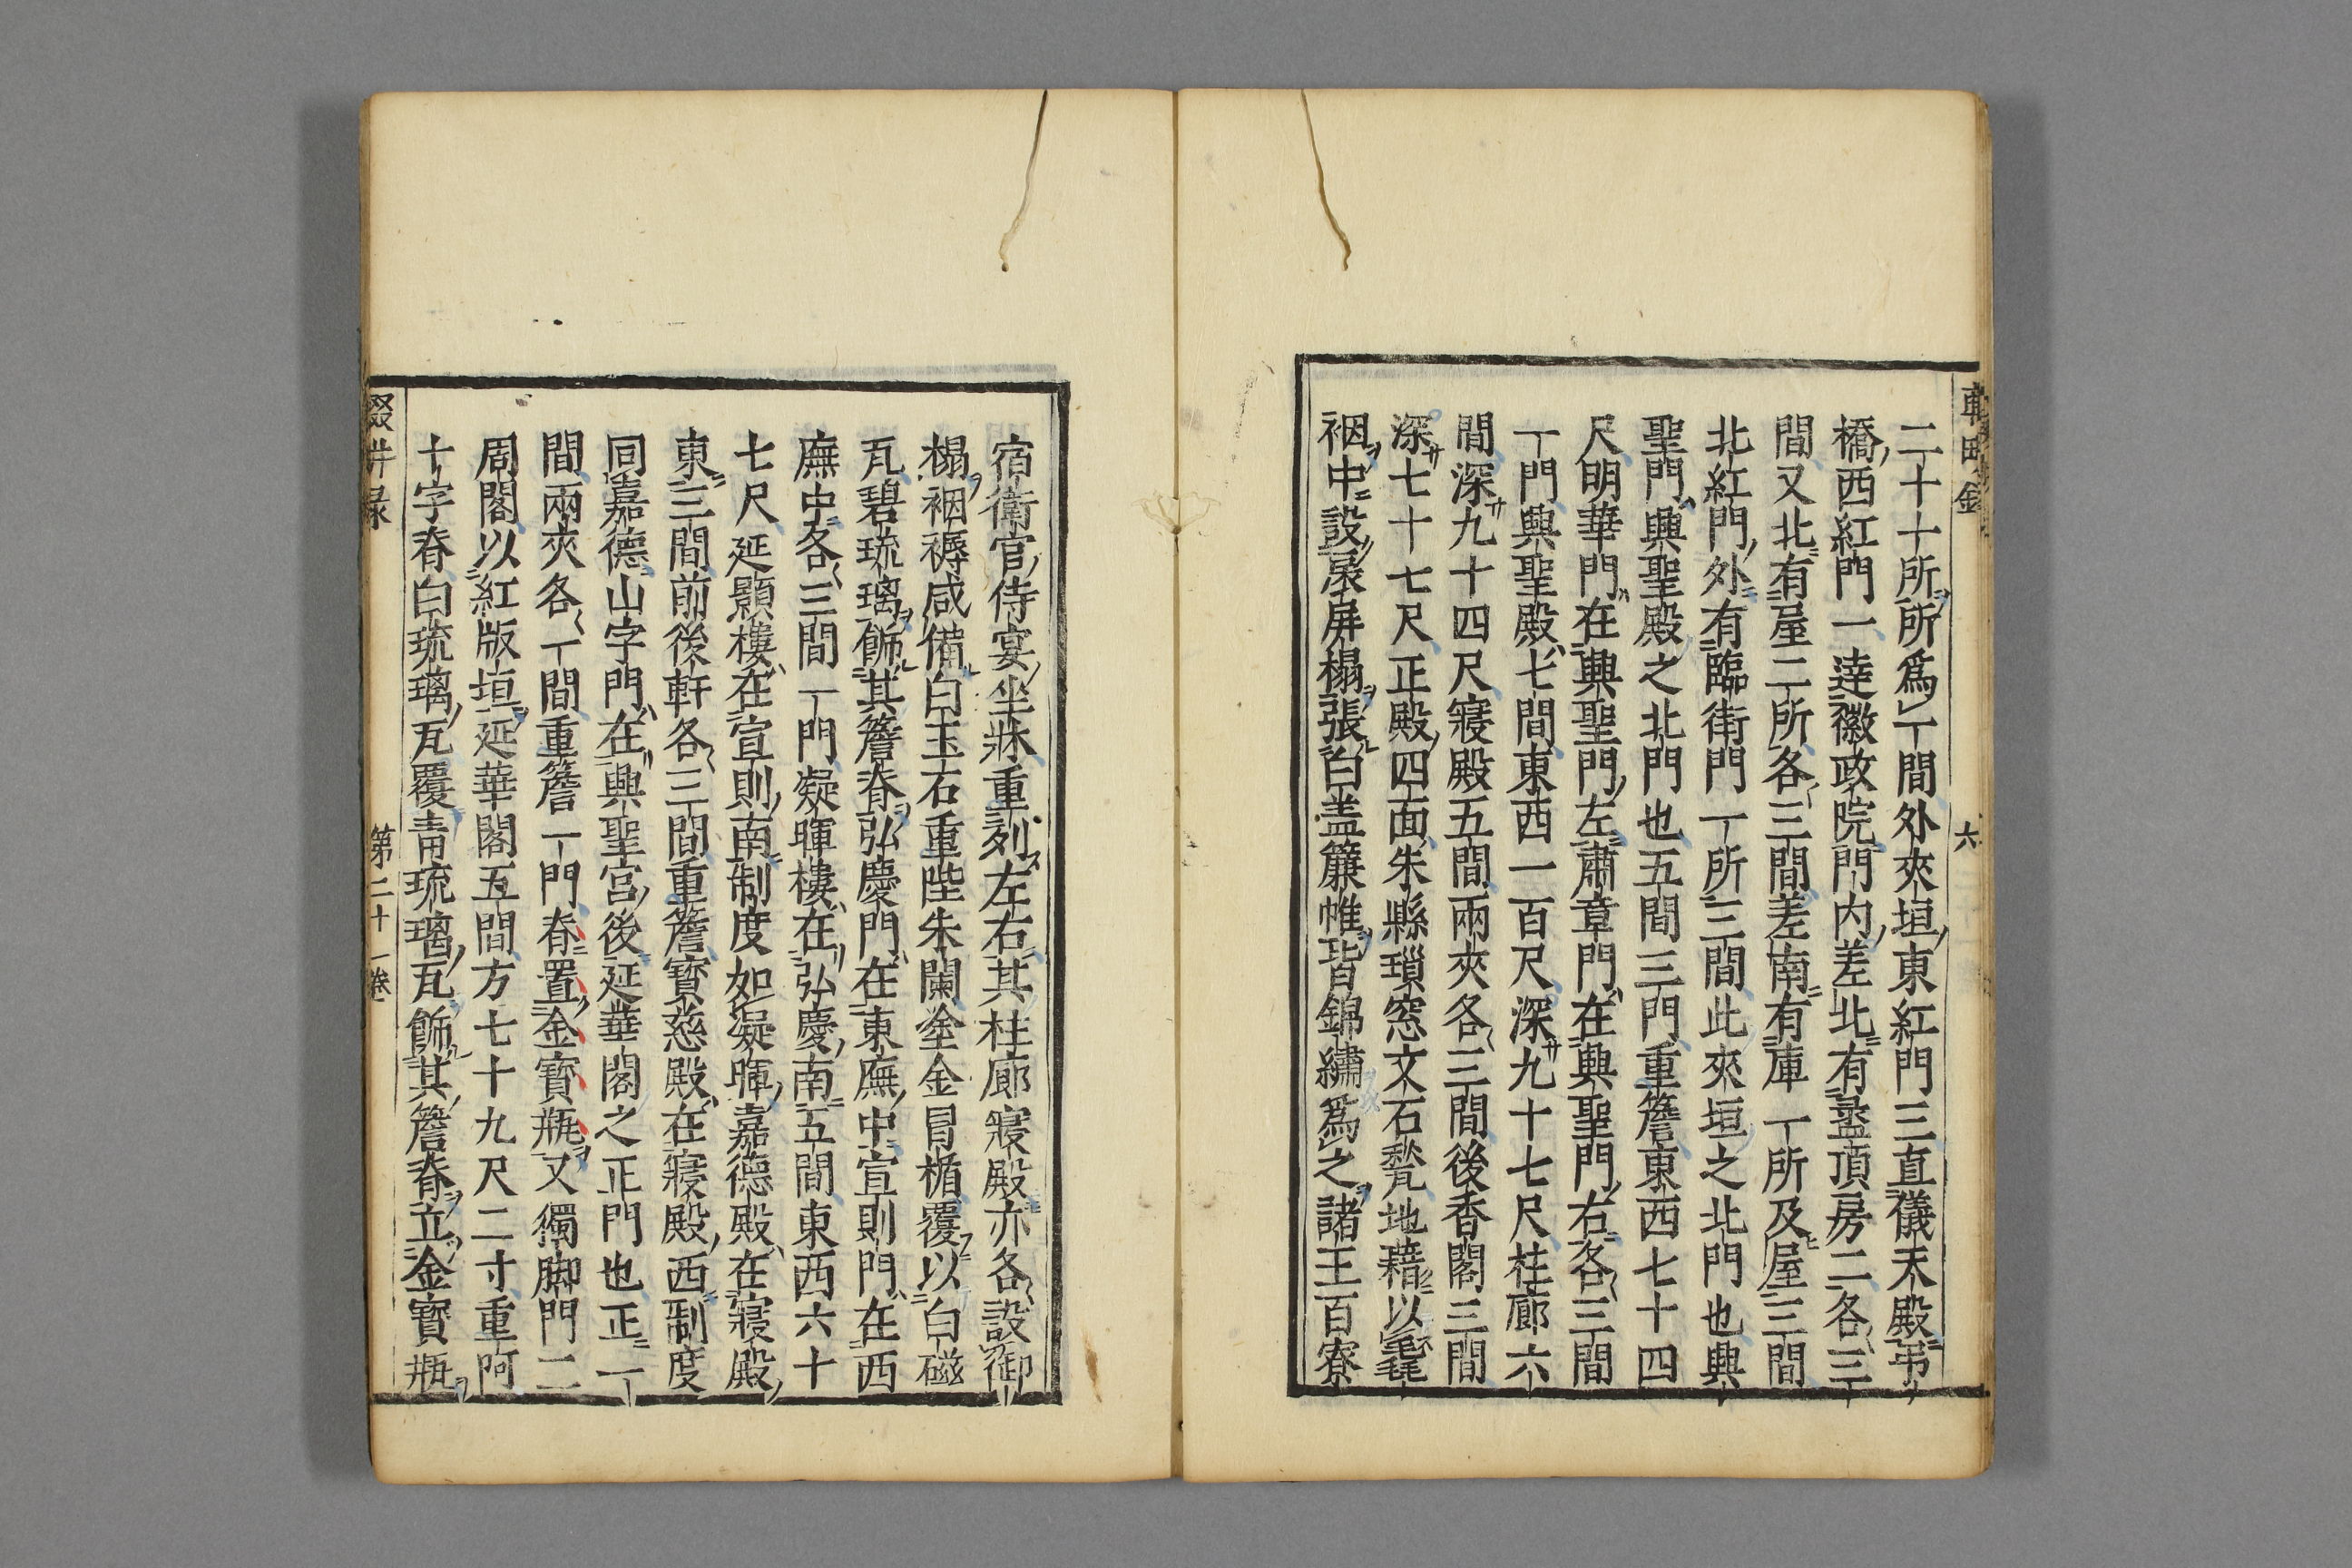 二十十所所爲一間外夾垣東紅門三直儀天殿吊
橋西紅門一達徽政院門内差北有盝頂房二各三
間又北有屋二所各三間差南有庫一所及屋三間
北紅門外有臨街門一所三間此夾垣之北門也興
聖門興聖殿之北門也五間三門重簷東西七十四
尺明華門在興聖門左肅章門在興聖門右各三間
一門興聖殿七間東西一百尺深九十七尺柱廊六
間深九十四尺寢殿五間兩夾各三間後香閣三間
深七十七尺正殿四面朱縣瑣窓文石甃地藉以毳
裀中設扆屏榻張白盖簾帷皆錦繡爲之諸王百寮
六
宿衛官侍宴坐牀重列左右其柱廊寢殿亦各設御
榻裀褥咸備白玉石重陛朱闌塗金冒楯覆以白磁
瓦碧琉璃飾其簷脊弘慶門在東廡中宣則門在西
廡中各三間一門凝暉樓在弘慶南五間東西六十
七尺延顥樓在宣則南制度如凝暉嘉德殿在寢殿
東三間前後軒各三間重簷寶慈殿在寢殿西制度
同嘉德山字門在興聖宮後延華閣之正門也正一
間兩夾各一間重簷一門脊置金寶瓶又獨脚門二
周閣以紅版垣延華閣五間方七十九尺二寸重阿
十字脊白琉璃瓦覆青琉璃瓦飾其簷脊立金寶瓶
輟畊録
第二十一卷